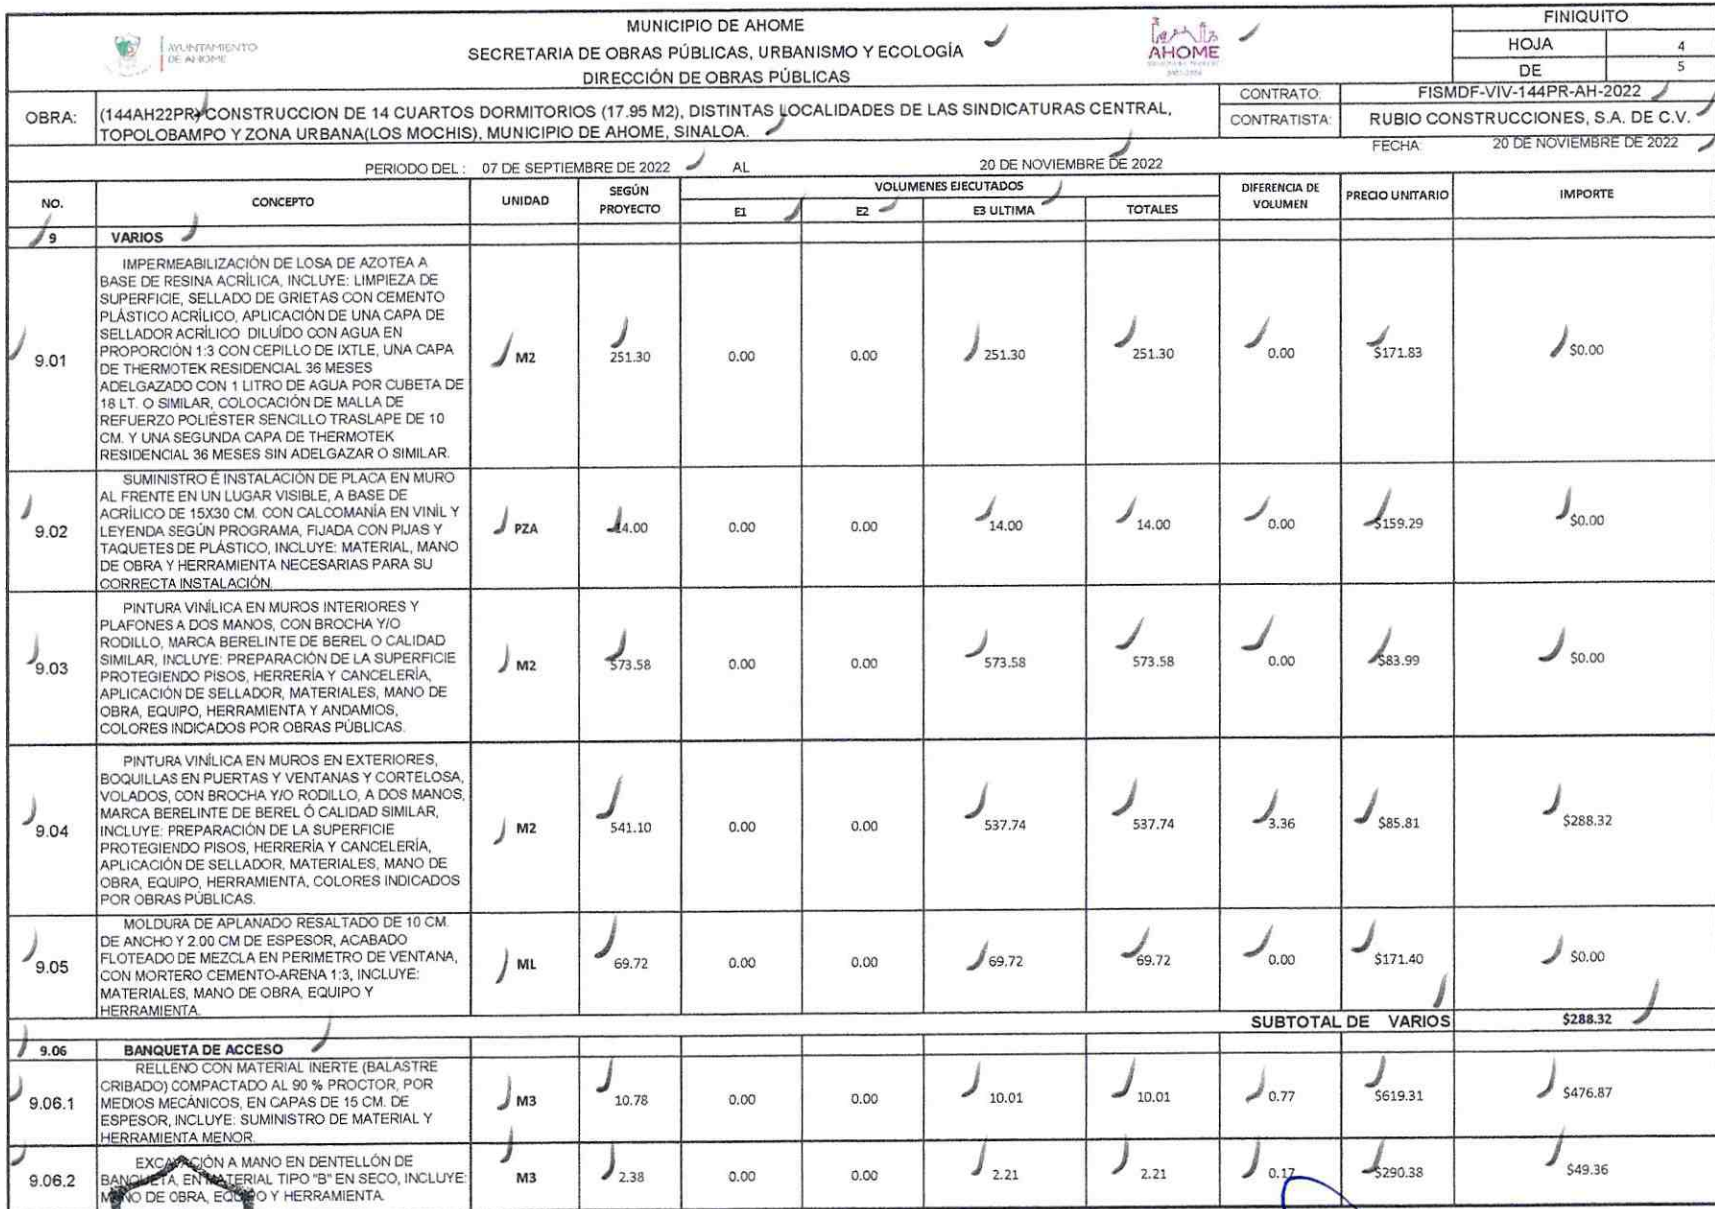 MUNICIPIO DE AHOME
SECRETARIA DE OBRAS PÚBLICAS, URBANISMO Y ECOLOGÍA
DIRECCIÓN DE OBRAS PÚBLICAS
AYUNTAMIENTO
DE AHOME
AHOME
FINIQUITO
HOJA 4
DE 5
OBRA: (144AH22PR) CONSTRUCCION DE 14 CUARTOS DORMITORIOS (17.95 M2), DISTINTAS LOCALIDADES DE LAS SINDICATURAS CENTRAL,
TOPOLOBAMPO Y ZONA URBANA(LOS MOCHIS), MUNICIPIO DE AHOME, SINALOA.
CONTRATO: FISMDF-VIV-144PR-AH-2022
CONTRATISTA: RUBIO CONSTRUCCIONES, S.A. DE C.V.
FECHA 20 DE NOVIEMBRE DE 2022
PERIODO DEL : 07 DE SEPTIEMBRE DE 2022 AL 20 DE NOVIEMBRE DE 2022
NO. CONCEPTO UNIDAD SEGÚN PROYECTO VOLUMENES EJECUTADOS DIFERENCIA DE VOLUMEN PRECIO UNITARIO IMPORTE
E1 E2 E3 ULTIMA TOTALES
9 VARIOS
IMPERMEABILIZACIÓN DE LOSA DE AZOTEA A
BASE DE RESINA ACRÍLICA, INCLUYE: LIMPIEZA DE
SUPERFICIE, SELLADO DE GRIETAS CON CEMENTO
PLÁSTICO ACRÍLICO, APLICACIÓN DE UNA CAPA DE
SELLADOR ACRÍLICO DILUÍDO CON AGUA EN
PROPORCIÓN 1:3 CON CEPILLO DE IXTLE, UNA CAPA
DE THERMOTEK RESIDENCIAL 36 MESES
ADELGAZADO CON 1 LITRO DE AGUA POR CUBETA DE
18 LT. O SIMILAR, COLOCACIÓN DE MALLA DE
REFUERZO POLIÉSTER SENCILLO TRASLAPE DE 10
CM. Y UNA SEGUNDA CAPA DE THERMOTEK
RESIDENCIAL 36 MESES SIN ADELGAZAR O SIMILAR.
9.01 M2 251.30 0.00 0.00 251.30 251.30 0.00 $171.83 $0.00
SUMINISTRO É INSTALACIÓN DE PLACA EN MURO
AL FRENTE EN UN LUGAR VISIBLE, A BASE DE
ACRÍLICO DE 15X30 CM. CON CALCOMANÍA EN VINÍL Y
LEYENDA SEGÚN PROGRAMA, FIJADA CON PIJAS Y
TAQUETES DE PLÁSTICO, INCLUYE: MATERIAL, MANO
DE OBRA Y HERRAMIENTA NECESARIAS PARA SU
CORRECTA INSTALACIÓN.
9.02 PZA 14.00 0.00 0.00 14.00 14.00 0.00 $159.29 $0.00
PINTURA VINÍLICA EN MUROS INTERIORES Y
PLAFONES A DOS MANOS, CON BROCHA Y/O
RODILLO, MARCA BERELINTE DE BEREL O CALIDAD
SIMILAR, INCLUYE: PREPARACIÓN DE LA SUPERFICIE
PROTEGIENDO PISOS, HERRERÍA Y CANCELERÍA,
APLICACIÓN DE SELLADOR, MATERIALES, MANO DE
OBRA, EQUIPO, HERRAMIENTA Y ANDAMIOS,
COLORES INDICADOS POR OBRAS PÚBLICAS.
9.03 M2 573.58 0.00 0.00 573.58 573.58 0.00 $83.99 $0.00
PINTURA VINÍLICA EN MUROS EN EXTERIORES,
BOQUILLAS EN PUERTAS Y VENTANAS Y CORTELOSA,
VOLADOS, CON BROCHA Y/O RODILLO, A DOS MANOS,
MARCA BERELINTE DE BEREL Ó CALIDAD SIMILAR,
INCLUYE: PREPARACIÓN DE LA SUPERFICIE
PROTEGIENDO PISOS, HERRERÍA Y CANCELERÍA,
APLICACIÓN DE SELLADOR, MATERIALES, MANO DE
OBRA, EQUIPO, HERRAMIENTA, COLORES INDICADOS
POR OBRAS PÚBLICAS.
9.04 M2 541.10 0.00 0.00 537.74 537.74 3.36 $85.81 $288.32
MOLDURA DE APLANADO RESALTADO DE 10 CM.
DE ANCHO Y 2.00 CM DE ESPESOR, ACABADO
FLOTEADO DE MEZCLA EN PERIMETRO DE VENTANA,
CON MORTERO CEMENTO-ARENA 1:3, INCLUYE:
MATERIALES, MANO DE OBRA, EQUIPO Y
HERRAMIENTA.
9.05 ML 69.72 0.00 0.00 69.72 69.72 0.00 $171.40 $0.00
SUBTOTAL DE VARIOS $288.32
9.06 BANQUETA DE ACCESO
RELLENO CON MATERIAL INERTE (BALASTRE
CRIBADO) COMPACTADO AL 90 % PROCTOR, POR
MEDIOS MECÁNICOS, EN CAPAS DE 15 CM. DE
ESPESOR, INCLUYE: SUMINISTRO DE MATERIAL Y
HERRAMIENTA MENOR.
9.06.1 M3 10.78 0.00 0.00 10.01 10.01 0.77 $619.31 $476.87
EXCAVACIÓN A MANO EN DENTELLÓN DE
BANQUETA, EN MATERIAL TIPO "B" EN SECO, INCLUYE:
MANO DE OBRA, EQUIPO Y HERRAMIENTA.
9.06.2 M3 2.38 0.00 0.00 2.21 2.21 0.17 $290.38 $49.36